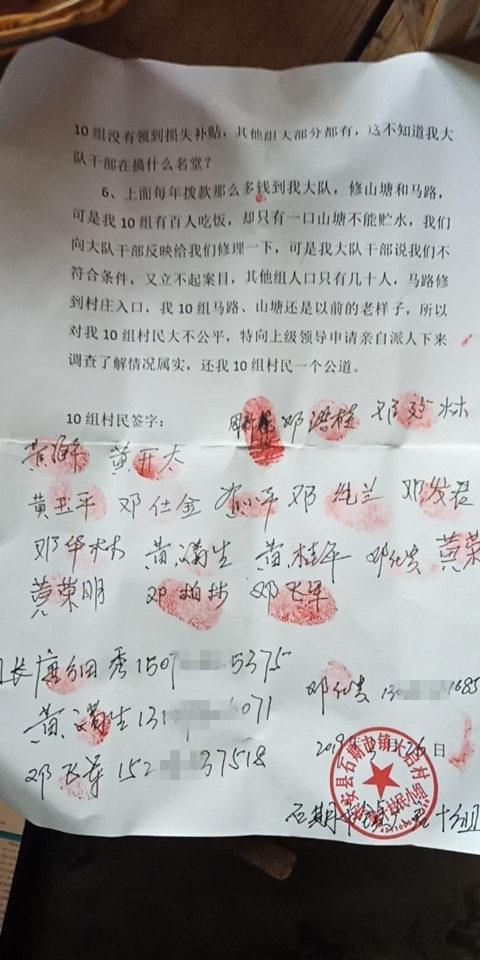 10 组没有领到损失补贴，其他组大部分都有，这不知道我大
队干部在搞什么名堂？
6、上面每年拨款那么多钱到我大队，修山塘和马路，
可是我 10 组有百人吃饭，却只有一口山塘不能贮水，我们
向大队干部反映给我们修理一下，可是我大队干部说我们不
符合条件，又立不起案目，其他组人口只有几十人，马路修
到村庄入口，我 10 组马路、山塘还是以前的老样子，所以
对我 10 组村民大不公平，特向上级领导申请亲自派人下来
调查了解情况属实，还我 10 组村民一个公道。
10 组村民签字：
黄开太
黄卫平 邓仕金 邓纯兰 邓发君
邓华林 黄满生 黄桂年 黄荣
黄荣明 邓柏 邓飞军
长唐细秀 150 5375
黄满生 13 6071 13 1685
邓飞军 152 37518
26 日
石期市镇 十组